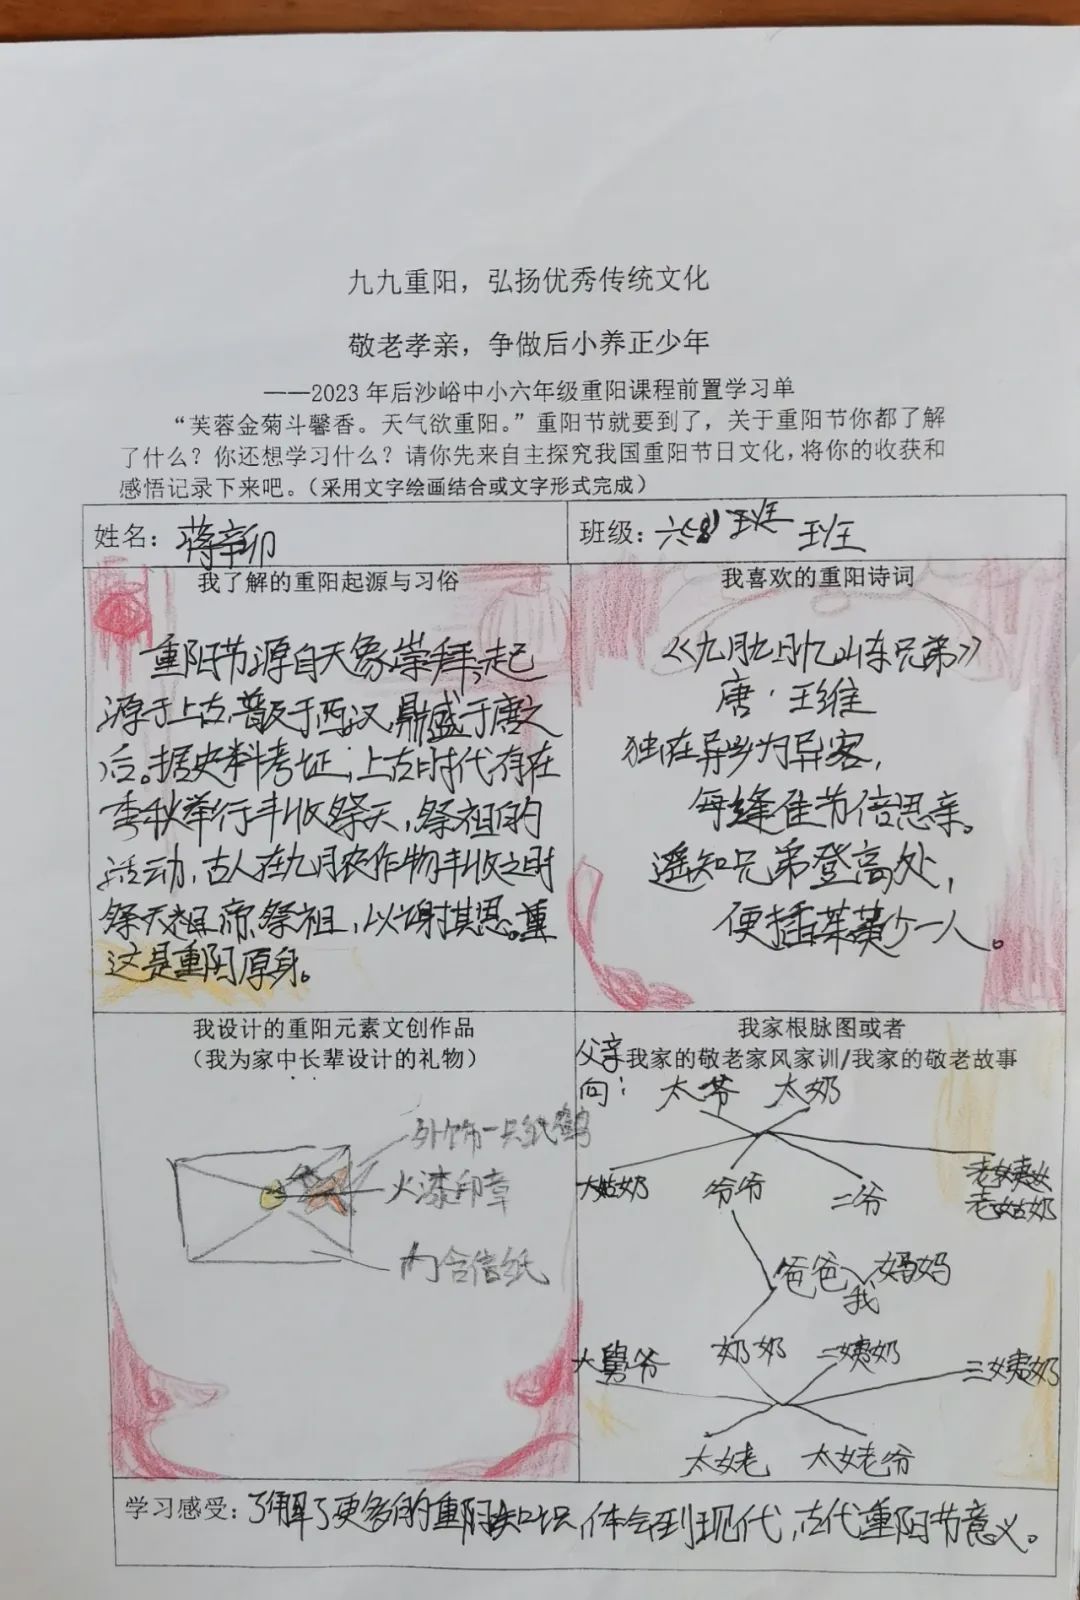 九九重阳，弘扬优秀传统文化
敬老孝亲，争做后小养正少年
——2023年后沙峪中小六年级重阳课程前置学习单
“芙蓉金菊斗馨香。天气欲重阳。”重阳节就要到了，关于重阳节你都了解
了什么？你还想学习什么？请你先来自主探究我国重阳节日文化，将你的收获和
感悟记录下来吧。（采用文字绘画结合或文字形式完成）
姓名：蒋辛卯
班级：六(8)班 班
我了解的重阳起源与习俗
重阳节源自天象崇拜，起
源于上古，普及于西汉，鼎盛于唐之
后。据史料考证，上古时代有在
季秋举行丰收祭天，祭祖的
活动，古人在九月农作物丰收之时
祭天帝祭祖，以谢其恩。
这是重阳原身。
我喜欢的重阳诗词
《九月九日忆山东兄弟》
唐·王维
独在异乡为异客，
每逢佳节倍思亲。
遥知兄弟登高处，
便插茱萸少一人。
我设计的重阳元素文创作品
（我为家中长辈设计的礼物）
外饰一只纸鹤
火漆印章
内含信纸
我家根脉图或者
我家的敬老家风家训/我家的敬老故事
父亲
向：
太爷 太奶
大姑奶 爷爷 二爷 老姑奶
爸爸 妈妈
我
大舅爷 奶奶 二姨奶 三姨奶
太姥 太姥爷
学习感受：了解了更多的重阳知识，体会到现代，古代重阳节意义。